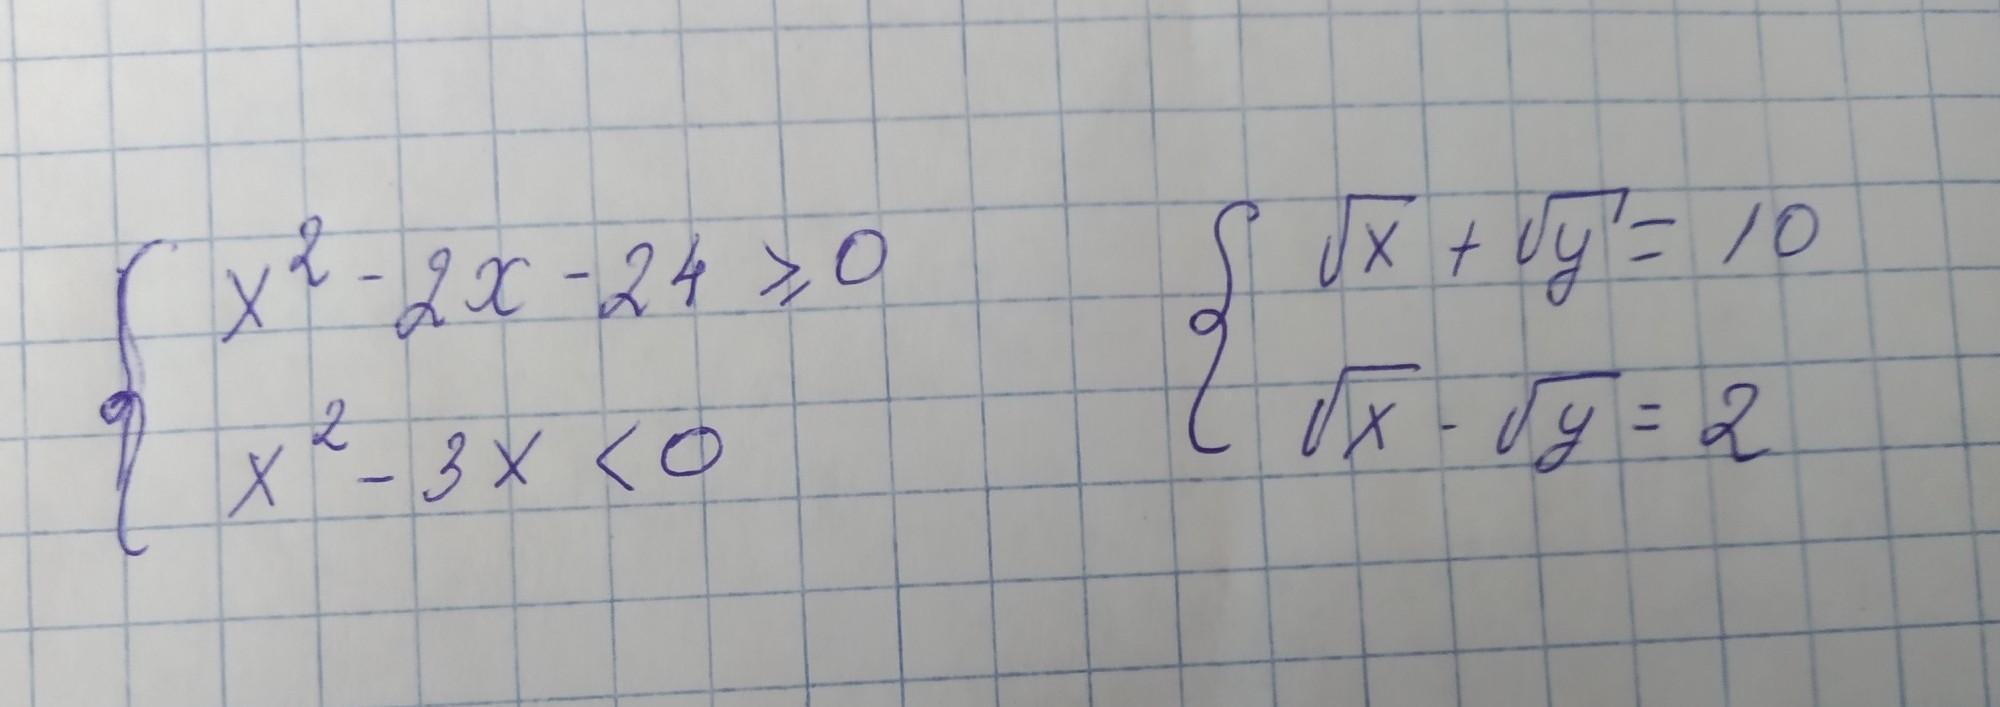 x² - 2x - 24 ⩾ 0
x² - 3x < 0
√x + √y = 10
√x - √y = 2